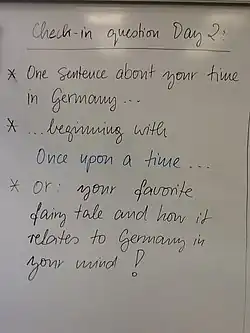 Check-in question Day 2:
* One sentence about your time
in Germany...
* ...beginning with
Once upon a time...
* Or: your favorite
fairy tale and how it
relates to Germany in
your mind!